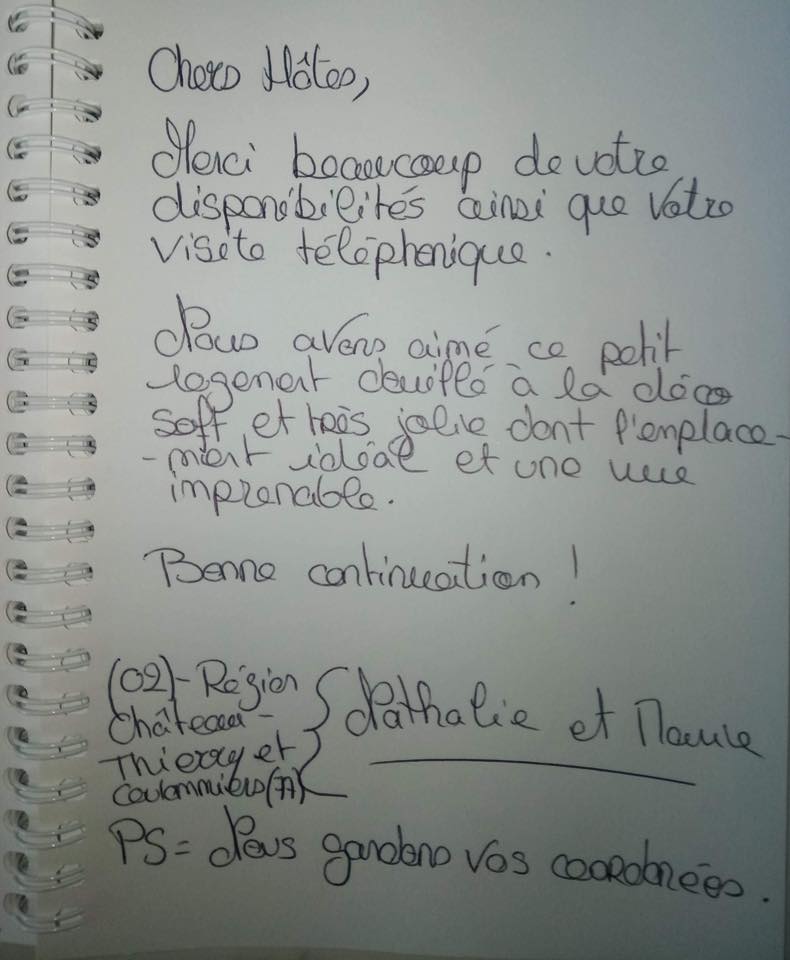 Chers Hôtes,
Merci beaucoup de votre
disponibilités ainsi que votre
visite téléphonique.
Nous avons aimé ce petit
logement douillé à la déco
soft et très jolie dont l'emplace-
-ment idéal et une vue
imprenable.
Bonne continuation !
(02)-Région
Château-
Thierry et
Coulommiers (77)
Nathalie et
PS = Nous gardons vos coordonées.